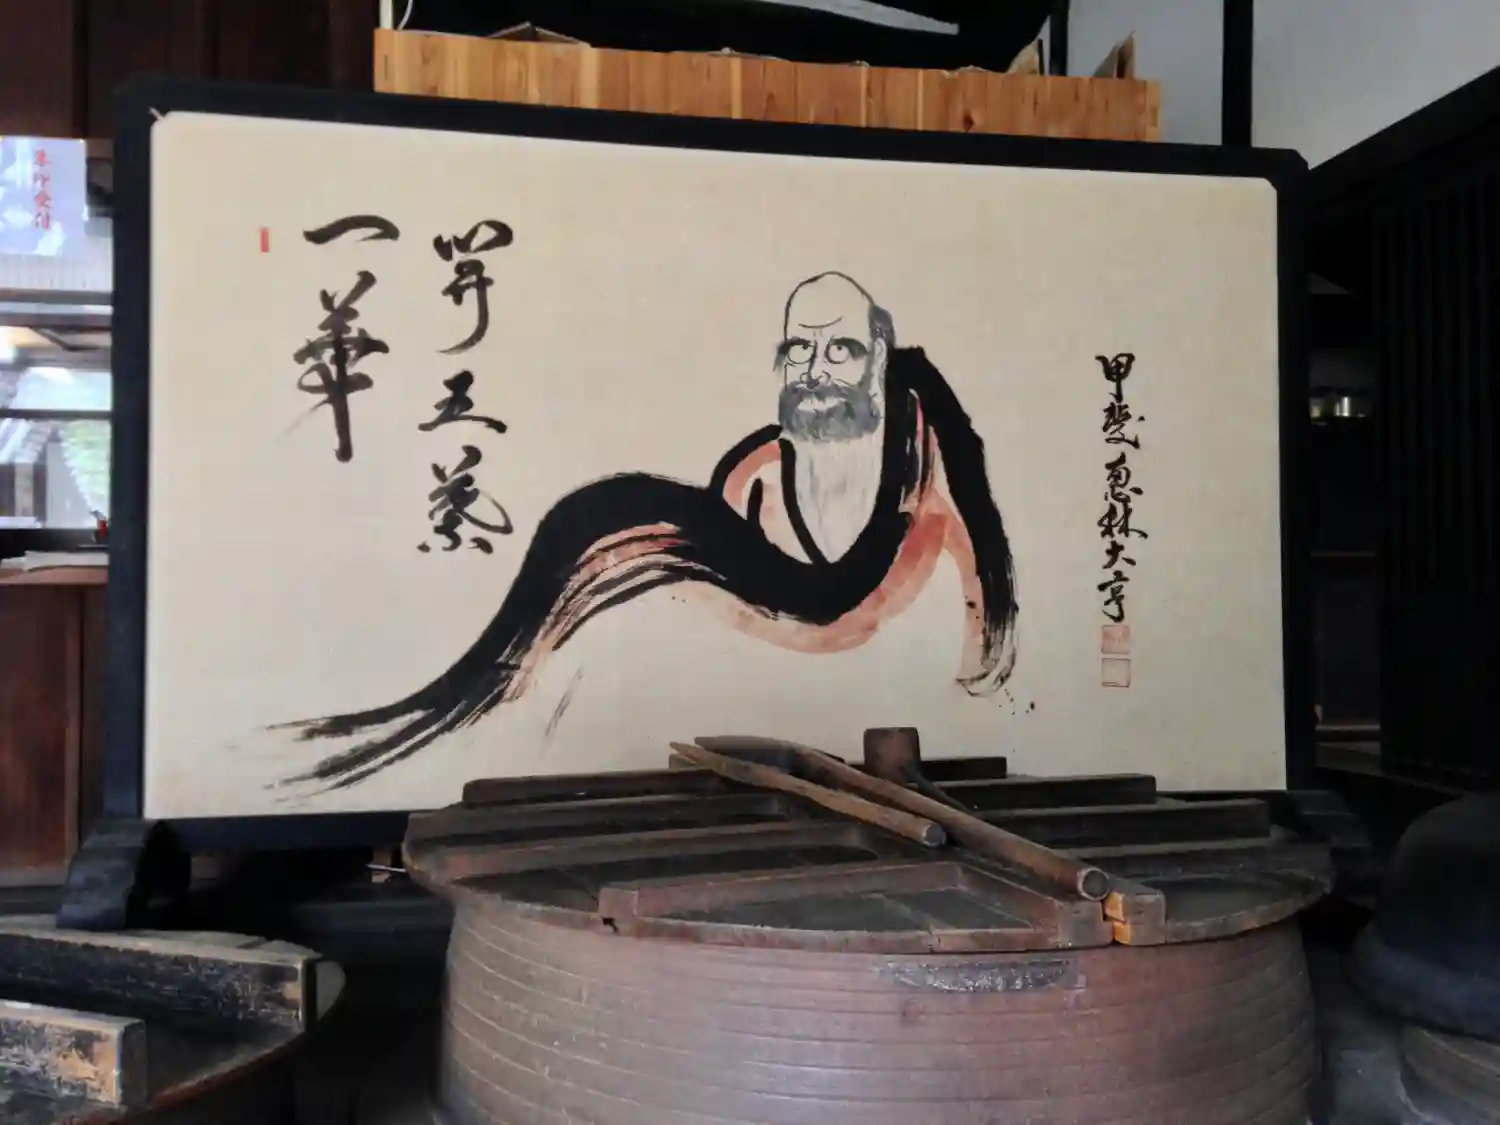 一華
開五葉
甲斐 恵林大亨
朱印受付